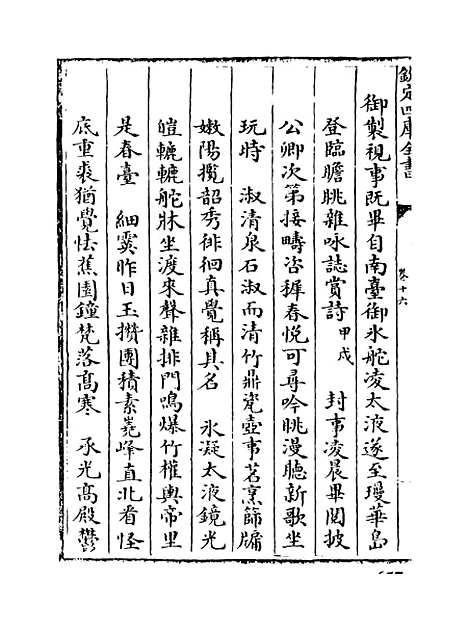 欽定四庫全書
卷十六
御製視事既畢自南臺御氷舵凌太液遂至瓊華島
登臨瞻眺雜咏誌賞詩甲戌 封事凌晨畢閱披
公卿次第接疇咨穉春悅可尋吟眺漫聽新歌坐
玩時 淑清泉石淑而清竹鼎瓷壺事茗烹篩牖
嫩陽攬韶秀徘徊真覺稱其名 氷凝太液鏡光
皚轆轆舵牀坐渡來聲雜排門鳴爆竹權輿帝里
是春臺 細霙昨日玉攢團積素嶤峰直北看怪
底重裘猶覺怯蕉園鐘梵落髙寒 承光髙殿鬱